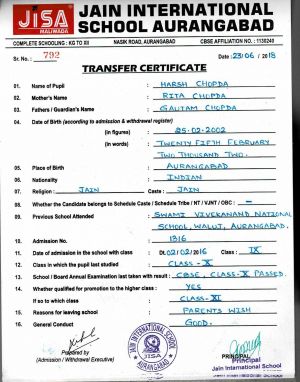 JISA
MALIWADA
JAIN INTERNATIONAL
SCHOOL AURANGABAD
COMPLETE SCHOOLING : KG TO XII NASIK ROAD, AURANGABAD CBSE AFFILIATION NO. : 1130240
Sr. No. : 792 Date : 23/06/2018
TRANSFER CERTIFICATE
01. Name of Pupil : HARSH CHOPDA
02. Mother's Name : RITA CHOPDA
03. Fathers / Guardian's Name : GAUTAM CHOPDA
04. Date of Birth (according to admission & withdrawal register)
(in figures) : 25-02-2002
(in words) : TWENTY FIFTH FEBRUARY
TWO THOUSAND TWO.
05. Place of Birth : AURANGABAD
06. Nationality : INDIAN
07. Religion : JAIN Caste : JAIN
08. Whether the Candidate belongs to Schedule Caste / Schedule Tribe / NT / VJNT / OBC : –
09. Previous School Attended : SWAMI VIVEKANAND NATIONAL
SCHOOL, WALUJ, AURANGABAD.
10. Admission No. : 1316
11. Date of admission in the school with class : Dt. 02/02/2016 Class : IX
12. Class in which the pupil last studied : CLASS - X
13. School / Board Annual Examination last taken with result : CBSE, CLASS-X PASSED.
14. Whether qualified for promotion to the higher class : YES
If so to which class : CLASS - XI
15. Reasons for leaving school : PARENTS WISH
16. General Conduct : GOOD.
Prepared by
(Admission / Withdrawal Executive)
JAIN INTERNATIONAL SCHOOL
JISA
AURANGABAD
PRINCIPAL
Principal
Jain International School